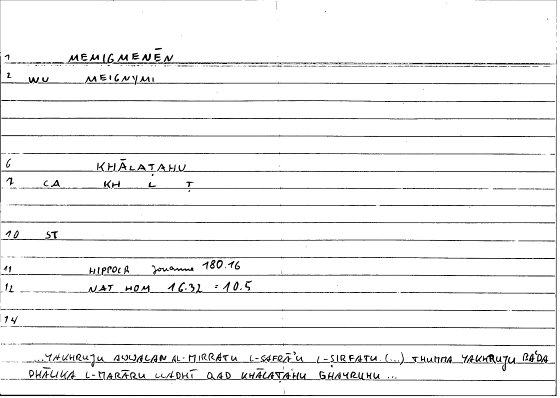 1 MEMIGMENĒN
2 WU MEIGNYMI
6 KHĀLAṬAHU
7 CA KH L Ṭ
10 ST
11 HIPPOCR Jouanna 180.16
12 NAT HOM 16.32 = 10.5
14
...YAKHRUJU AWWALAN AL-MIRRATU L-ṢAFRĀ'U L-ṢIRFATU (...) THUMMA YAKHRUJU BA'DA
DHĀLIKA L-MARĀRU LLADHĪ QAD KHĀLAṬAHU GHAYRUHU ...